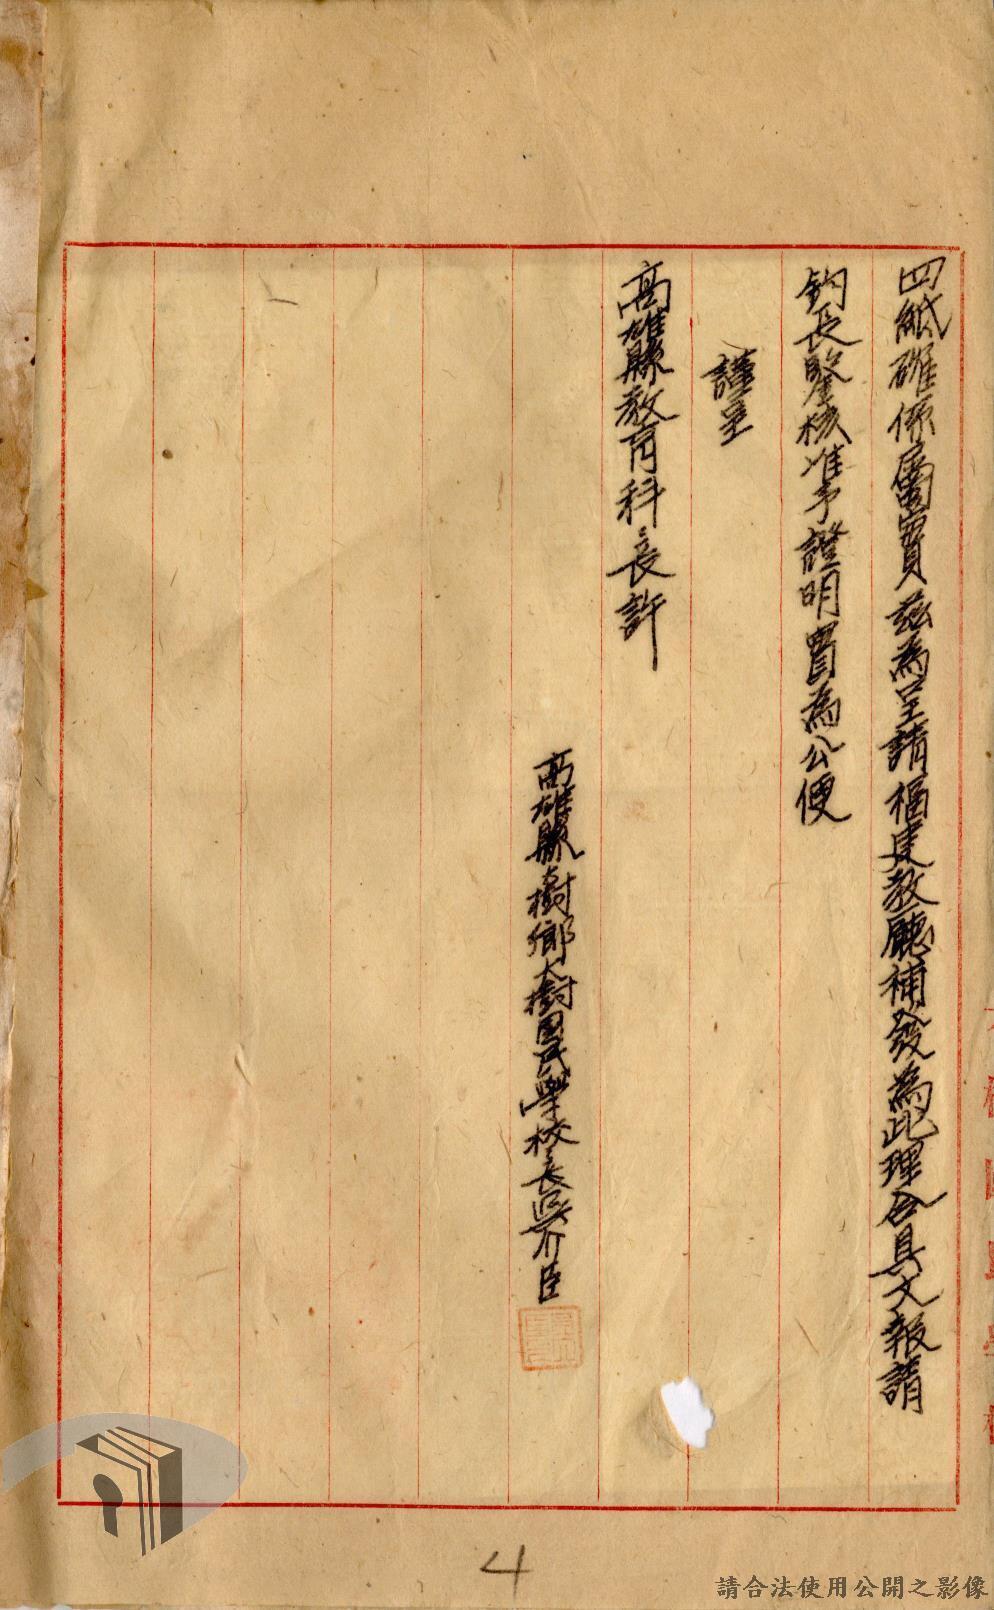 四紙確係屬實茲為呈請福建教廳補發為此理合具文報請
鈞長鑒核准予證明實為公便
謹呈
高雄縣教育科長許
高雄縣大樹鄉大樹國民學校長吳介臣
4
請合法使用公開之影像